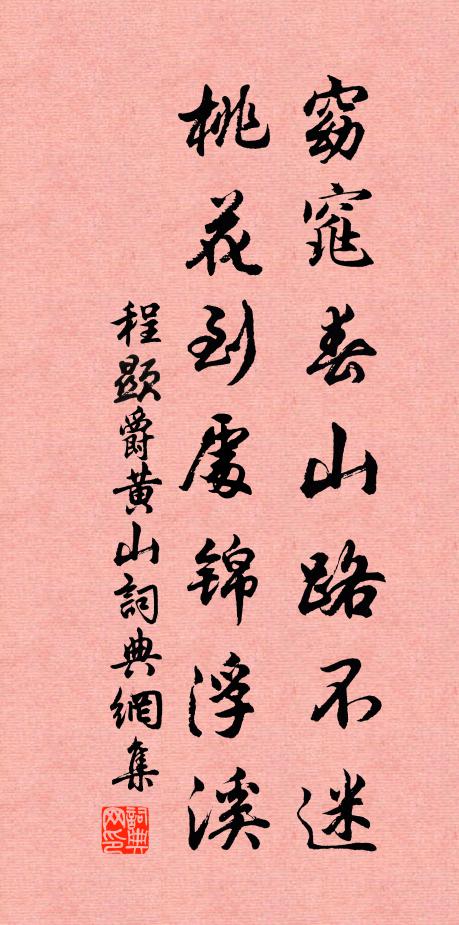 窈窕春山路不迷
桃花到處錦浮溪
程顯爵黃山詞典網集
詞典网印